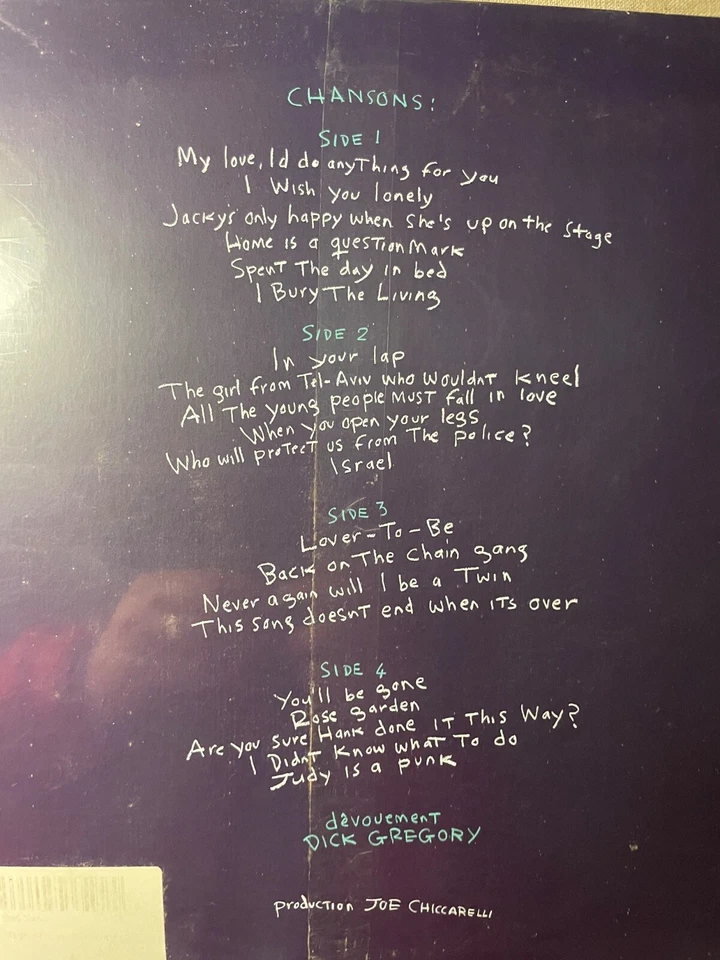 CHANSONS:
SIDE 1
My love, I'd do anything for you
I Wish you lonely
Jacky's only happy when she's up on the stage
Home is a question mark
Spent The day in bed
I Bury The Living
SIDE 2
In your lap
The girl from Tel-Aviv who wouldnt kneel
All The young people must fall in love
When you open your legs
Who will protect us from The police?
Israel
SIDE 3
Lover-To-Be
Back on The chain gang
Never again will I be a Twin
This song doesnt end when its over
SIDE 4
You'll be gone
Rose garden
Are you sure Hank done it This Way?
I Didnt Know what To do
Judy is a punk
dévouement
DICK GREGORY
production JOE CHICCARELLI